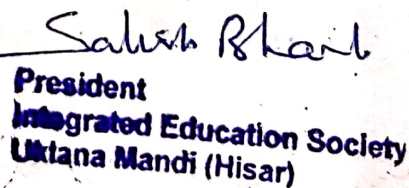 President
Integrated Education Society
Uklana Mandi (Hisar)